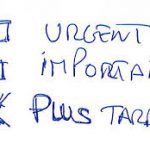 URGENT
iMPORTA
PLUS TAR